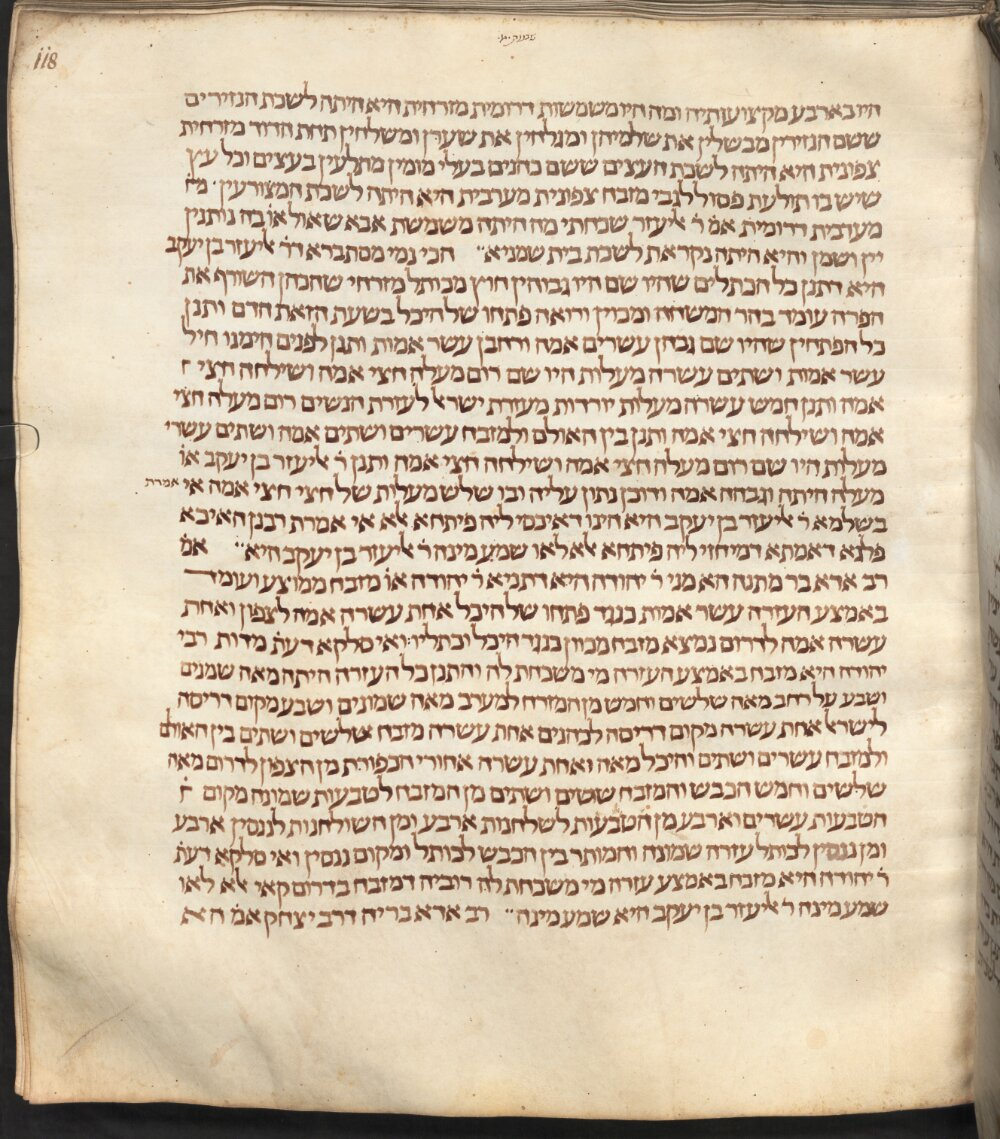 118
היו בארבע מקצועותיה ומה היו משמשות דרומית מזרחית היא היתה לשכת הנזירים
ששם הנזירין מבשלין את שלמיהן ומגלחין את שערן ומשלחין תחת הדוד מזרחית
צפונית היא היתה לשכת העצים ששם כהנים בעלי מומין מתלעין בעצים וכל עץ
שיש בו תולעת פסול לגבי מזבח צפונית מערבית היא היתה לשכת המצורעין
מערבית דרומית אמ' ר' אליעזר שכחתי מה היתה משמשת אבא שאול או' בה נותנין
יין ושמן והיא היתה נקראת לשכת בית שמניא הכי נמי מסתברא דר' אליעזר בן יעקב
היא דתנן כל הכתלים שהיו שם היו גבוהין חוץ מכותל מזרחי שהכהן השורף את
הפרה עומד בהר המשחה ומכוין ורואה פתחו של היכל בשעת הזאת הדם ותנן
כל הפתחין שהיו שם גבהן עשרים אמה ורחבן עשר אמות ותנן לפנים הימנו חיל
עשר אמות ושתים עשרה מעלות היו שם רום מעלה חצי אמה ושילחה חצי
אמה ותנן חמש עשרה מעלות יורדות מעזרת ישראל לעזרת הנשים רום מעלה חצי
אמה ושילחה חצי אמה ותנן בין האולם ולמזבח עשרים ושתים אמה ושתים עשרי
מעלות היו שם רום מעלה חצי אמה ושילחה חצי אמה ותנן ר' אליעזר בן יעקב או'
מעלה היתה וגבהה אמה ודוכן נתון עליה ובו שלש מעלות של חצי חצי אמה אי אמרת
בשלמא ר' אליעזר בן יעקב היא הינו דאיכסי ליה פיתחא אלא אי אמרת רבנן האיכא
פלגא דאמתא דמיחזי ליה פיתחא אלא לאו שמע מינה ר' אליעזר בן יעקב היא אמ'
רב אדא בר מתנה הא מני ר' יהודה היא דתניא ר' יהודה או' מזבח ממוצע ועומד
באמצע העזרה עשר אמות כנגד פתחו של היכל אחת עשרה אמה לצפון ואחת
עשרה אמה לדרום נמצא מזבח מכוון כנגד היכל וכתליו ואי סלקא דעת' מדות רבי
יהודה היא מזבח באמצע העזרה מי משכחת לה והתנן כל העזרה היתה מאה שמנים
ושבע על רחב מאה שלשים וחמש מן המזרח למערב מאה שמונים ושבע מקום דריסה
לישראל אחת עשרה מקום דריסה לכהנים אחת עשרה מזבח שלשים ושתים בין האולם
ולמזבח עשרים ושתים והיכל מאה ואחת עשרה אחורי הכפורת מן הצפון לדרום מאה
שלשים וחמש הכבש והמזבח ששים ושתים מן המזבח לטבעות שמונה מקום
הטבעות עשרים וארבע מן הטבעות לשלחנות ארבע ומן השולחנות לננסין ארבע
ומן ננסין לכותל עזרה שמונה והמותר בין הכבש לכותל ומקום ננסין ואי סלקא דעת'
ר' יהודה היא מזבח באמצע עזרה מי משכחת לה רוביה דמזבח בדרום קאי אלא לאו
שמע מינה ר' אליעזר בן יעקב היא שמע מינה רב אדא בריה דרב יצחק אמ' הא